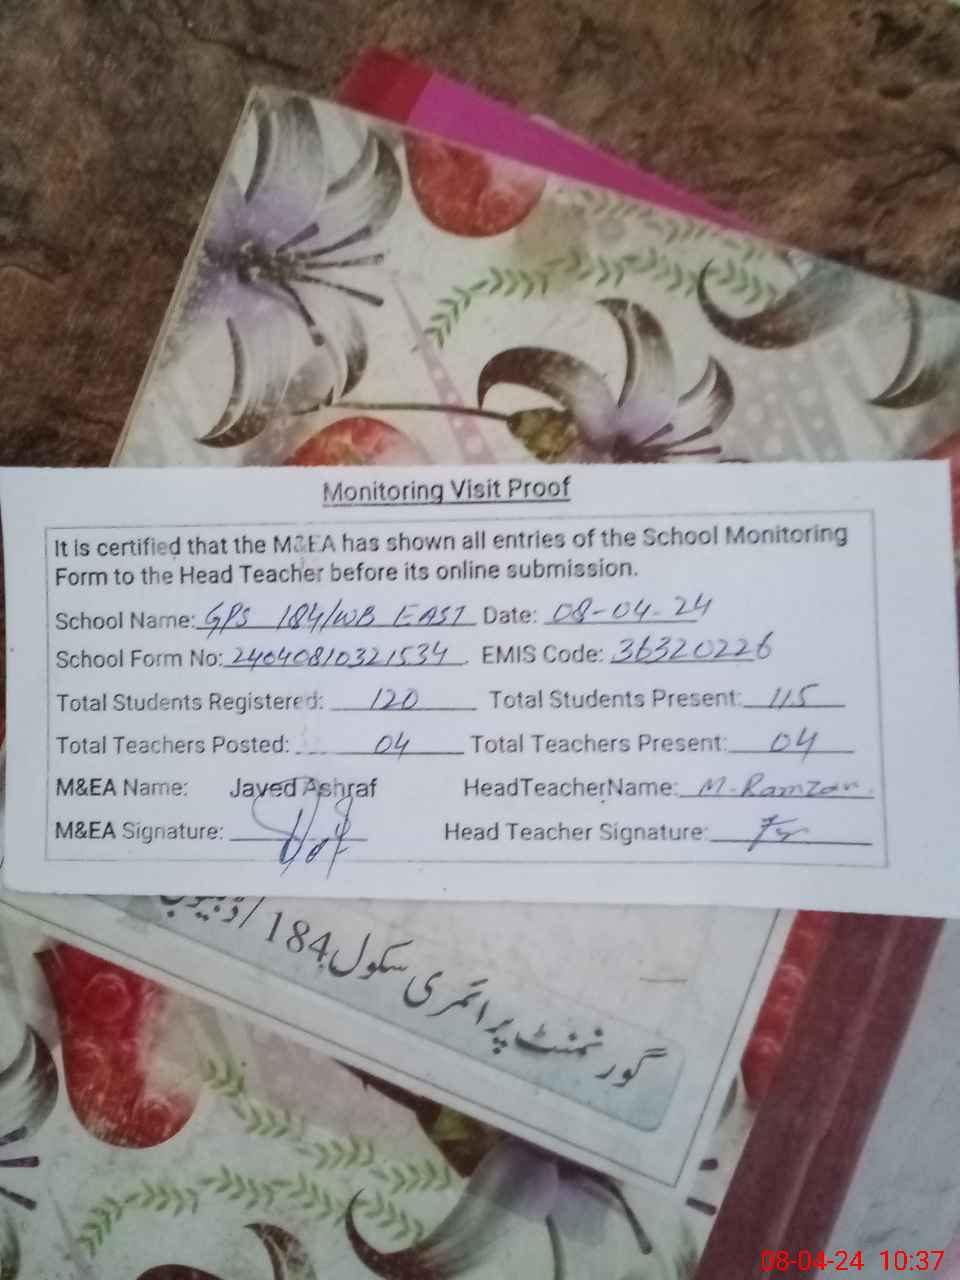 Monitoring Visit Proof
It is certified that the M&EA has shown all entries of the School Monitoring
Form to the Head Teacher before its online submission.
School Name: GPS 184/WB EAST Date: 08-04-24
School Form No: 24040810321534 EMIS Code: 36320226
Total Students Registered: 120 Total Students Present: 115
Total Teachers Posted: 04 Total Teachers Present: 04
M&EA Name: Javed Ashraf HeadTeacherName: M. Ramzan
M&EA Signature: Head Teacher Signature:
گورنمنٹ پرائمری سکول 184/ڈبلیو بی
08-04-24 10:37